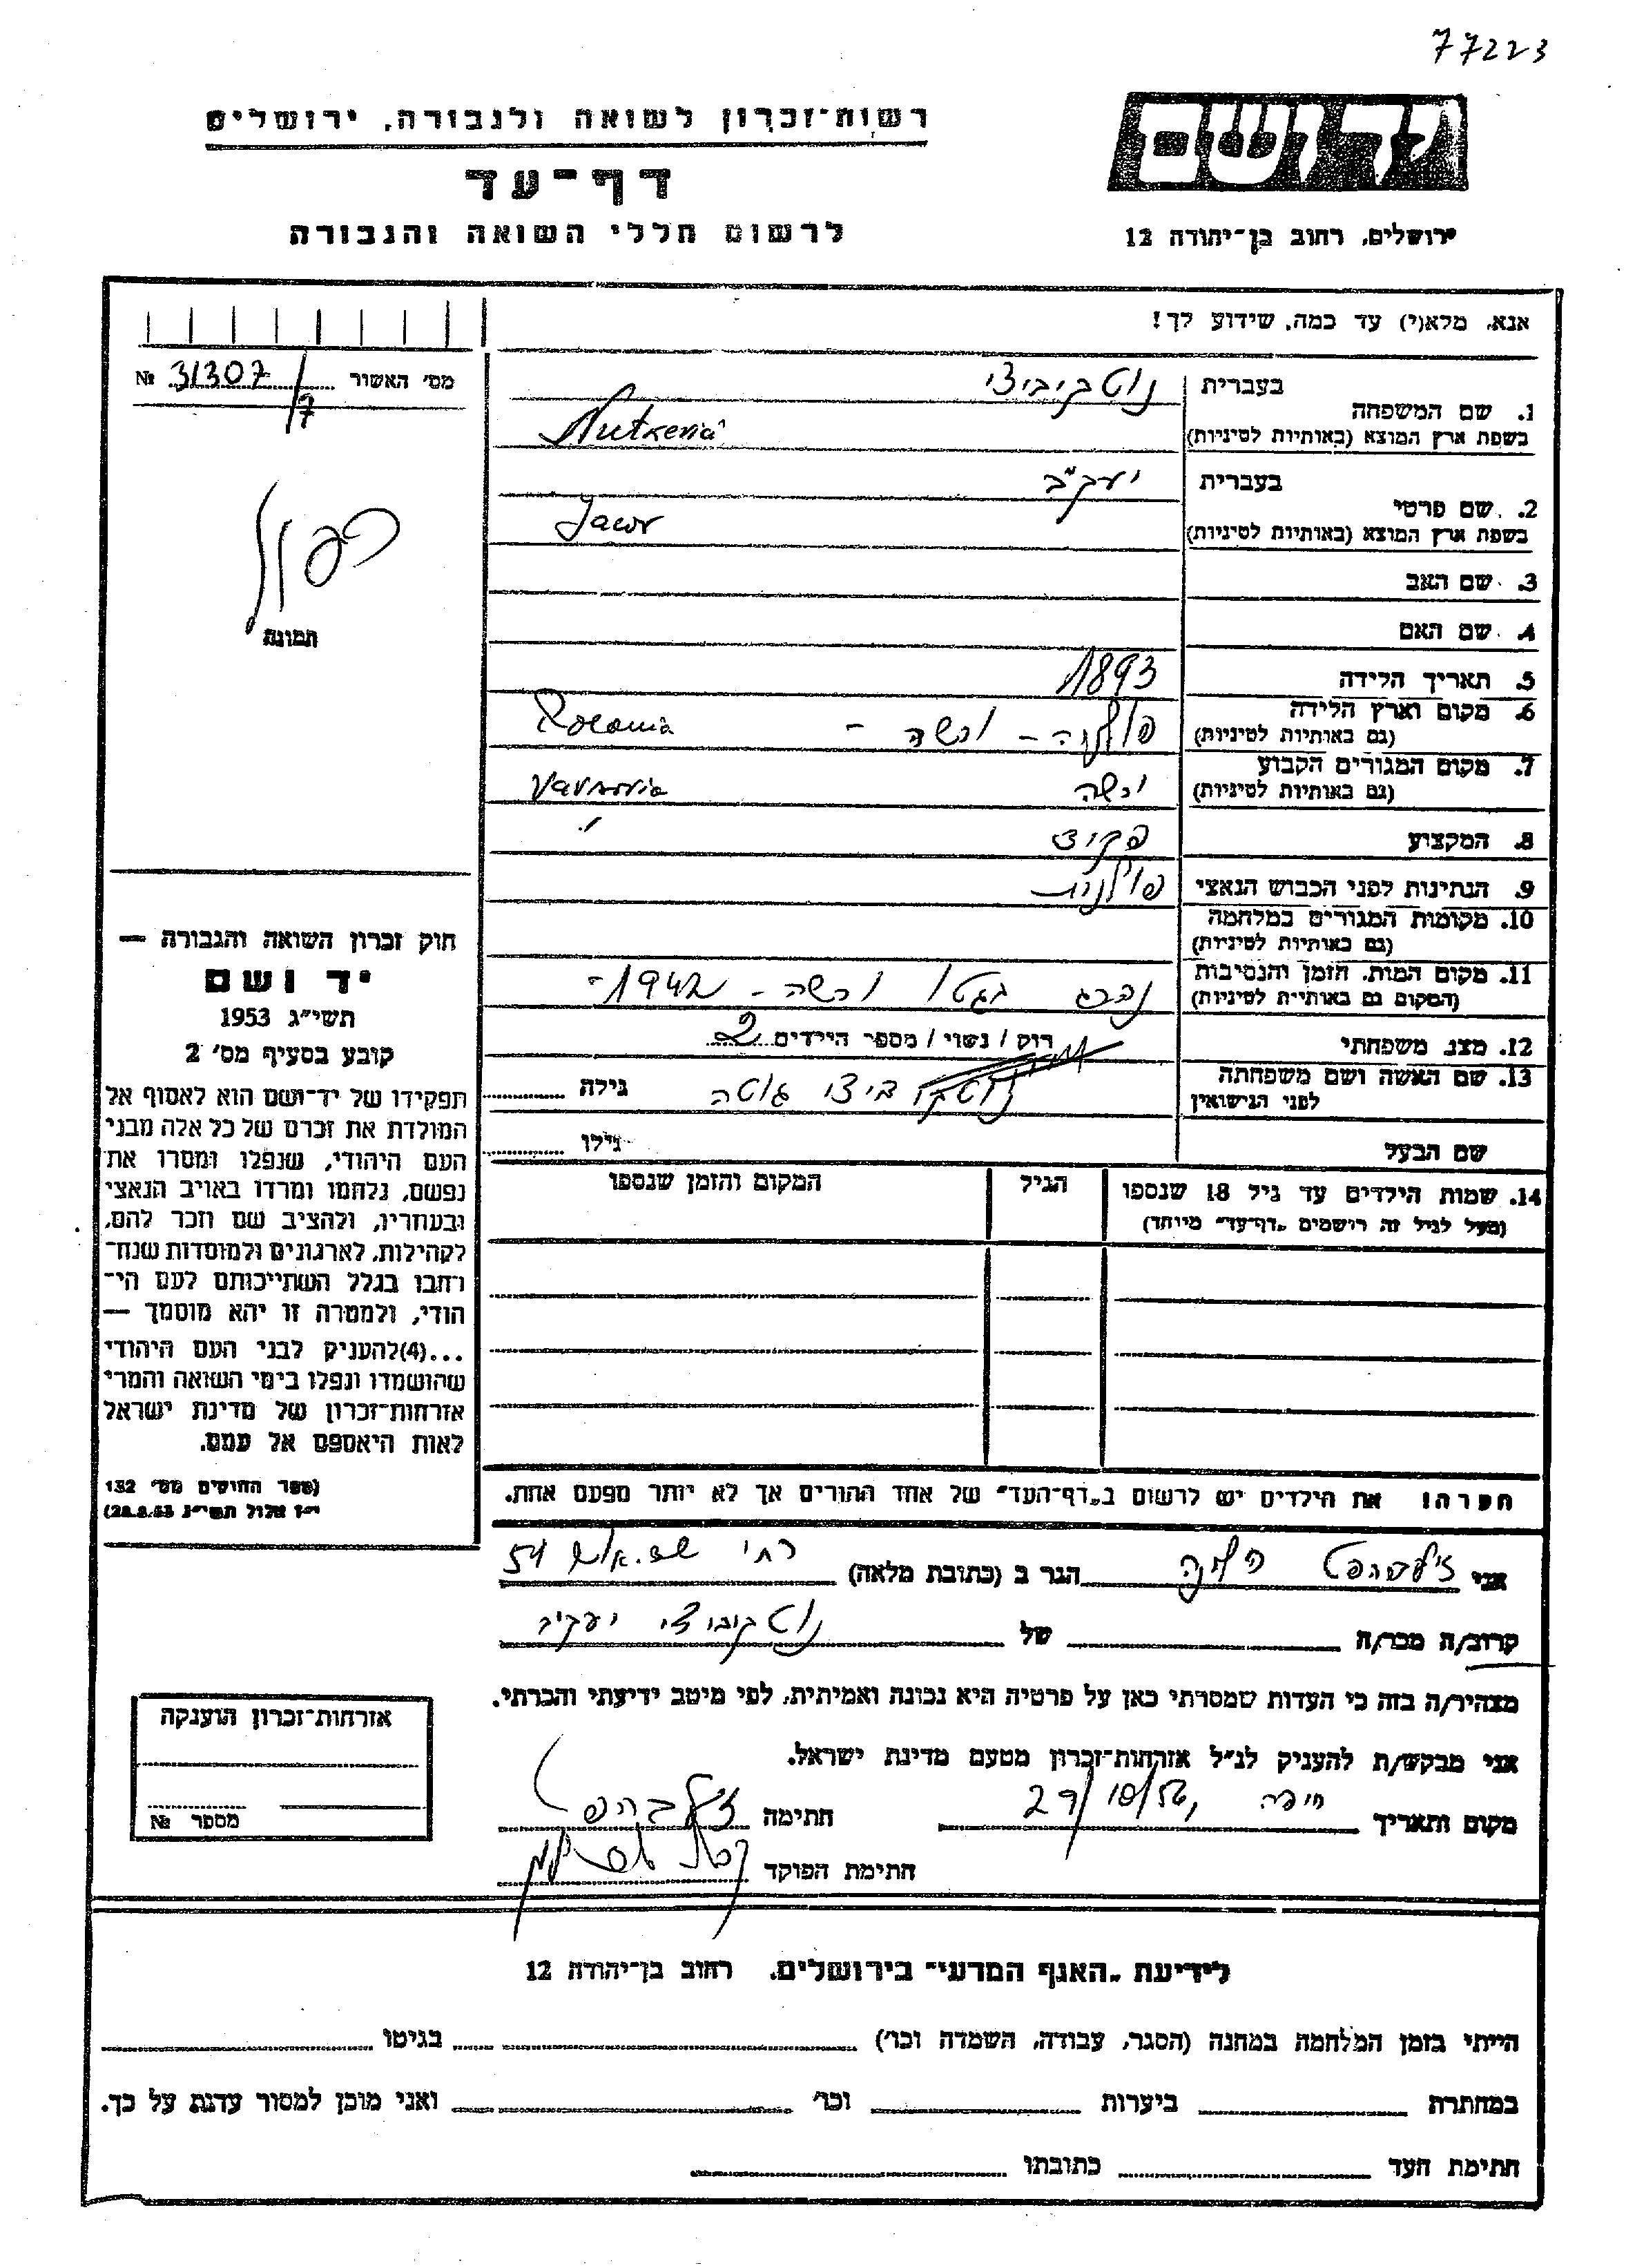 77223
רשות־זכרון לשואה ולגבורה, ירושלים
דף־עד
לרשום חללי השואה והגבורה
ידושם
ירושלים, רחוב בן־יהודה 12
אנא, מלא(י) עד כמה, שידוע לך!
מס׳ האשור 31307/7 №
תמונה
1. שם המשפחה
בעברית נוטקיביצי
בשפת ארץ המוצא (באותיות לטיניות)
2. שם פרטי
בעברית יעקב
בשפת ארץ המוצא (באותיות לטיניות) Jacov
3. שם האב
4. שם האם
5. תאריך הלידה 1893
6. מקום וארץ הלידה
(גם באותיות לטיניות) פולניה – ורשה – Polonia
7. מקום המגורים הקבוע
(גם באותיות לטיניות) ורשה Varsovia
8. המקצוע פקיד
9. הנתינות לפני הכבוש הנאצי פולנית
10. מקומות המגורים במלחמה
(גם באותיות לטיניות)
11. מקום המות, הזמן והנסיבות
(המקום גם באותיות לטיניות) נהרג בגטו ורשה – 1942 –
12. מצב משפחתי רווק / נשוי / מספר הילדים 2
13. שם האשה ושם משפחתה
לפני הנישואין נוטקוביצי גוטה גילה
שם הבעל גילו
14. שמות הילדים עד גיל 18 שנספו
(מעל לגיל זה רושמים „דף־עד״ מיוחד)
הגיל
המקום והזמן שנספו
חוק זכרון השואה והגבורה —
יד ושם
תשי״ג 1953
קובע בסעיף מס׳ 2
תפקידו של יד־ושם הוא לאסוף אל
המולדת את זכרם של כל אלה מבני
העם היהודי, שנפלו ומסרו את
נפשם, נלחמו ומרדו באויב הנאצי
ובעוזריו, ולהציב שם וזכר להם,
לקהילות, לארגונים ולמוסדות שנח־
רבו בגלל השתייכותם לעם הי־
הודי, ולמטרה זו יהא מוסמך —
...(4) להעניק לבני העם היהודי
שהושמדו ונפלו בימי השואה והמרי
אזרחות־זכרון של מדינת ישראל
לאות היאספם אל עמם.
(ספר החוקים מס׳ 132
י״ז אלול תשי״ג 28.8.53)
הערה! את הילדים יש לרשום ב„דף־העד״ של אחד ההורים אך לא יותר מפעם אחת.
אני הגר ב (כתובת מלאה) 54
קרוב/ה מכר/ה של נוטקוביצי יעקב
מצהיר/ה בזה כי העדות שמסרתי כאן על פרטיה היא נכונה ואמיתית, לפי מיטב ידיעתי והכרתי.
אני מבקש/ת להעניק לנ״ל אזרחות־זכרון מטעם מדינת ישראל.
מקום ותאריך חיפה, 29/10/56 חתימה
חתימת הפוקד
אזרחות־זכרון הוענקה
מספר №
לידיעת „האגף המדעי״ בירושלים, רחוב בן־יהודה 12
הייתי בזמן המלחמה במחנה (הסגר, עבודה, השמדה וכו׳) בגיטו
במחתרת ביערות וכו׳ ואני מוכן למסור עדות על כך.
חתימת העד כתובתו